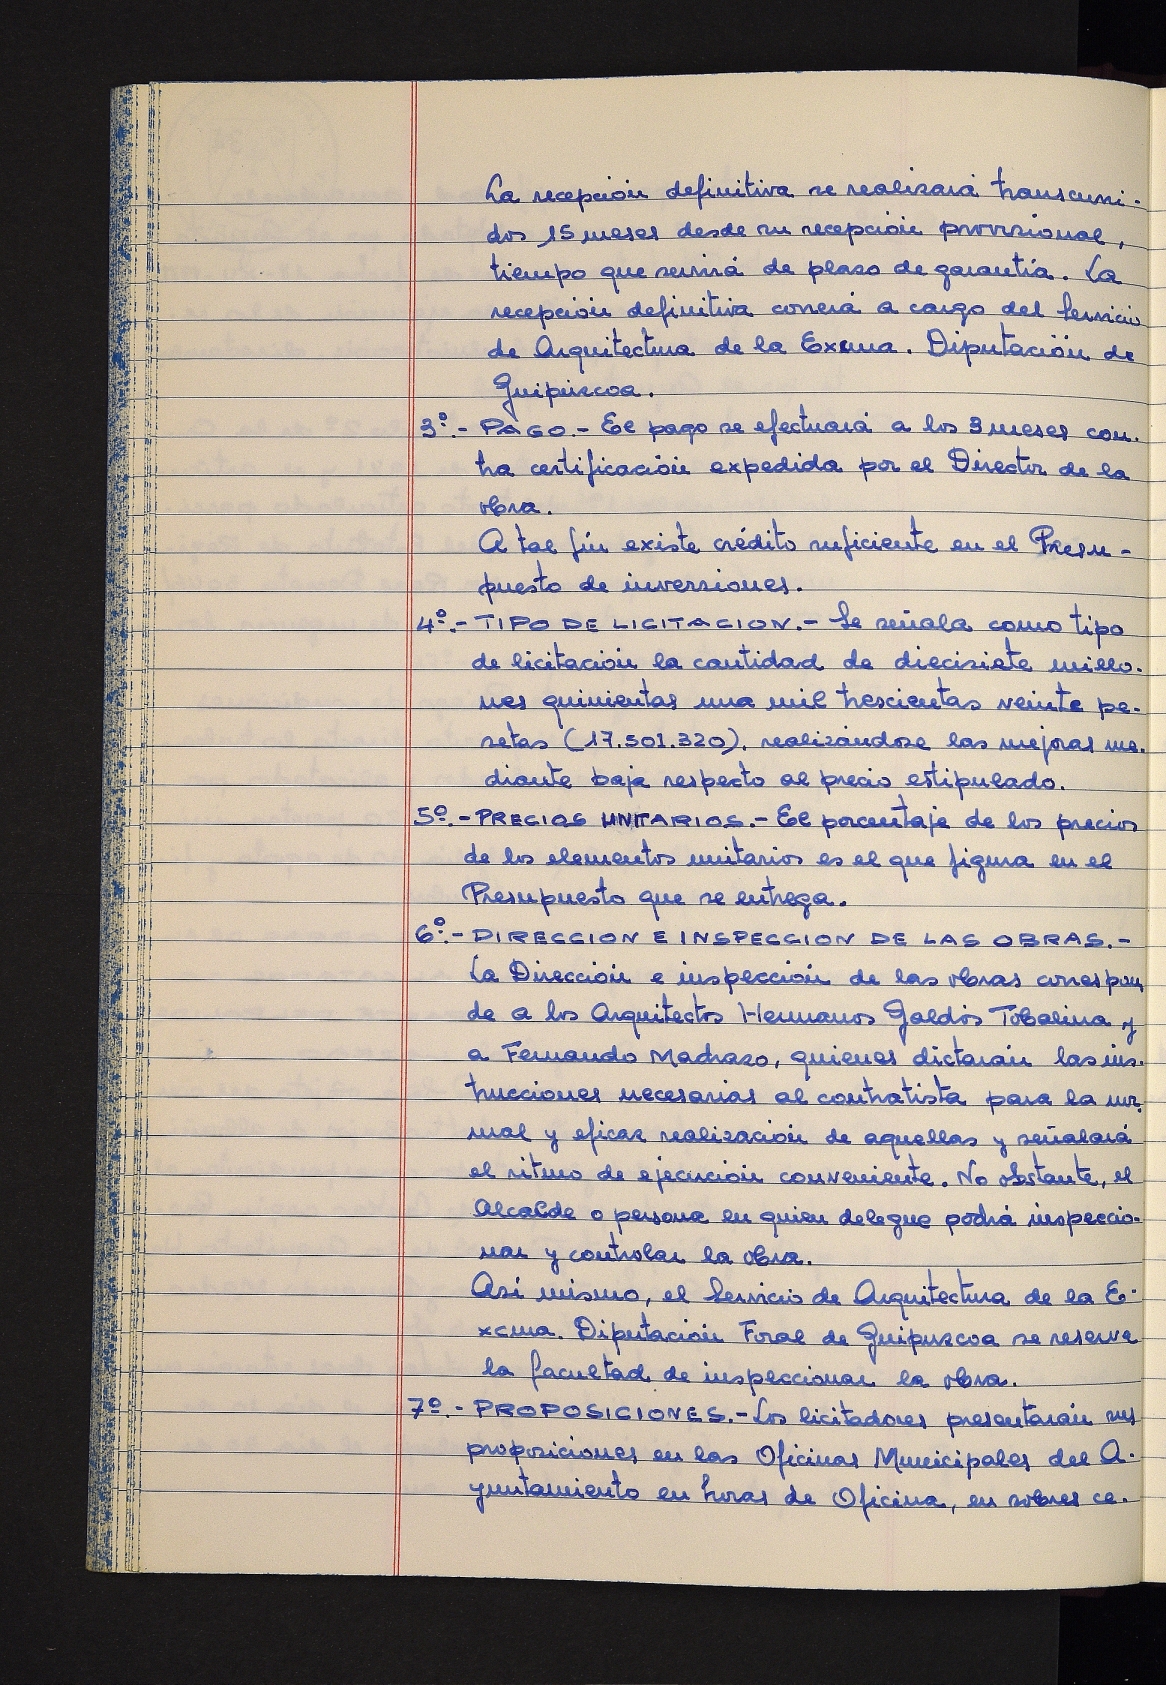 La recepción definitiva se realizará transcurri-
dos 15 meses desde su recepción provisional,
tiempo que servirá de plazo de garantía. La
recepción definitiva correrá a cargo del Servicio
de Arquitectura de la Excma. Diputación de
Guipúzcoa.
3º.- PAGO.- El pago se efectuará a los 3 meses con-
tra certificación expedida por el Director de la
obra.
A tal fín existe crédito suficiente en el Presu-
puesto de inversiones.
4º.- TIPO DE LICITACION.- Se señala como tipo
de licitación la cantidad de diecisiete millo-
nes quinientas una mil trescientas veinte pe-
setas (17.501.320), realizándose las mejoras me-
diante baja respecto al precio estipulado.
5º.- PRECIOS UNITARIOS.- El porcentaje de los precios
de los elementos unitarios es el que figura en el
Presupuesto que se entrega.
6º.- DIRECCION E INSPECCION DE LAS OBRAS.-
La Dirección e inspección de las obras correspon-
de a los Arquitectos Hermanos Galdós Tobalina y
a Fernando Madrazo, quienes dictarán las ins-
trucciones necesarias al contratista para la nor-
mal y eficaz realización de aquellas y señalará
el ritmo de ejecución conveniente. No obstante, el
Alcalde o persona en quien delegue podrá inspeccio-
nar y controlar la obra.
Así mismo, el Servicio de Arquitectura de la E-
xcma. Diputación Foral de Guipuzcoa se reserva
la facultad de inspeccionar la obra.
7º.- PROPOSICIONES.- Los licitadores presentarán sus
proposiciones en las Oficinas Municipales del A-
yuntamiento en horas de Oficina, en sobres ce-